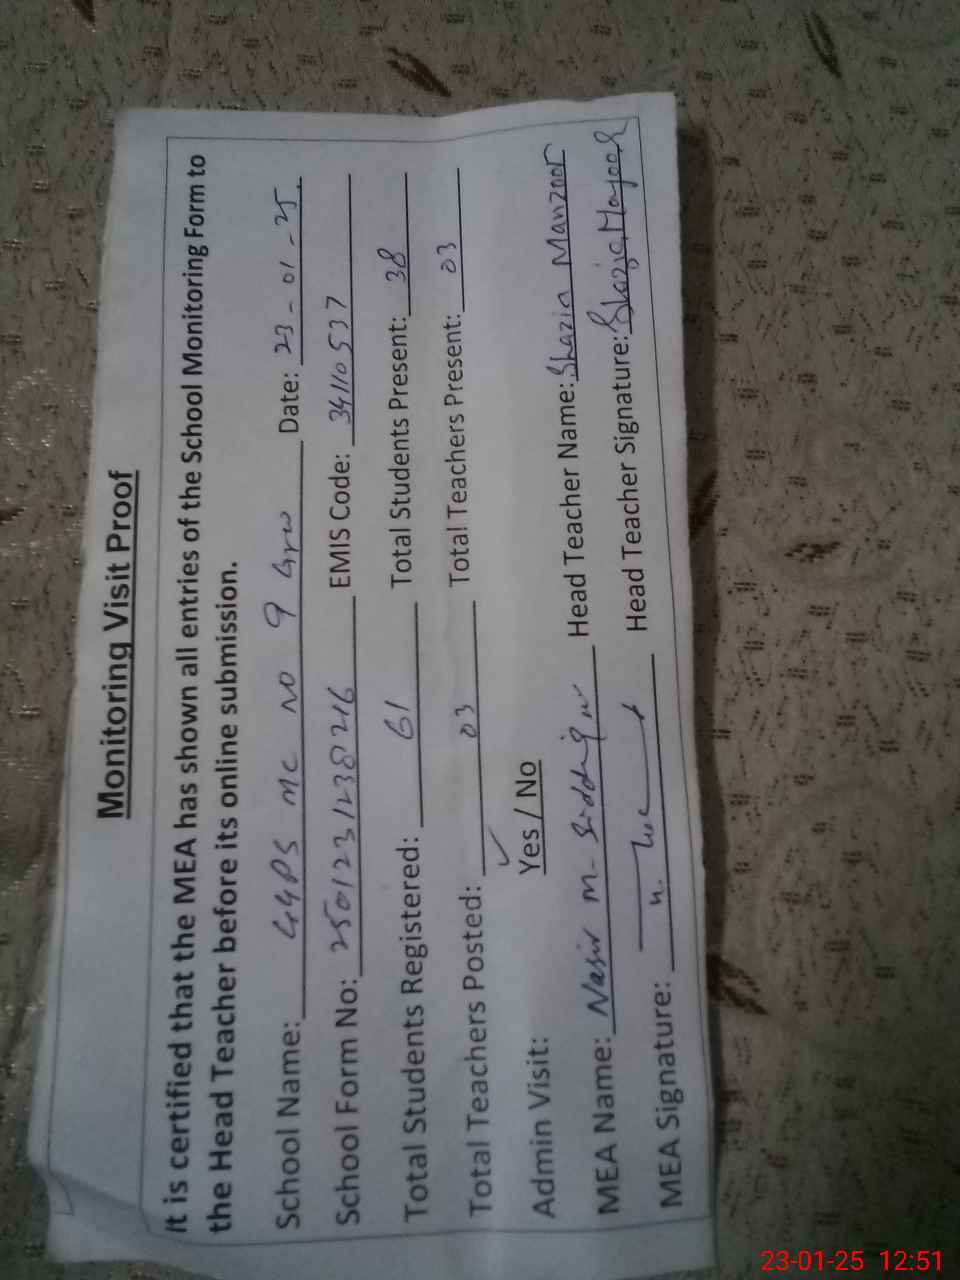 Monitoring Visit Proof
It is certified that the MEA has shown all entries of the School Monitoring Form to
the Head Teacher before its online submission.
School Name: GGPS MC NO 9 Grw Date: 23-01-25
School Form No: 2501231238216 EMIS Code: 34110537
Total Students Registered: 61 Total Students Present: 38
Total Teachers Posted: 03 Total Teachers Present: 03
Admin Visit: Yes / No
MEA Name: Nasir M. Head Teacher Name: Shazia Manzoor
MEA Signature: Head Teacher Signature: Shazia Manzoor
23-01-25 12:51